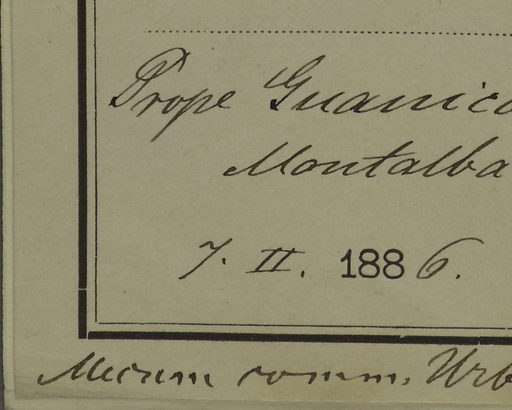 Prope Guanica
Montalba
7. II. 1886.
Mecum comm. Urb